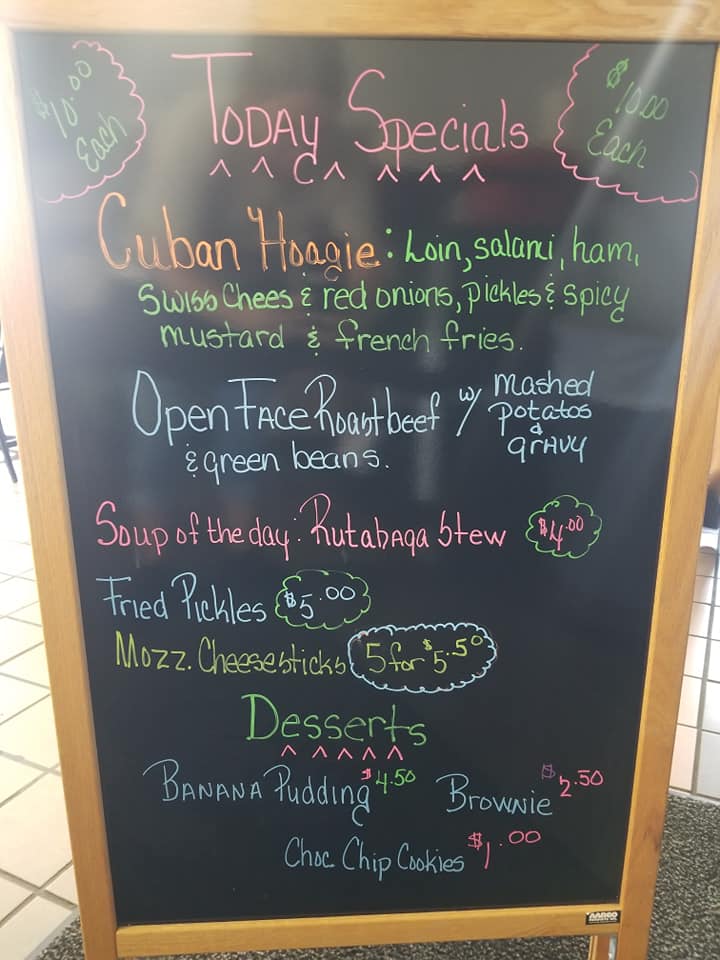 $10.00 Each
Today Specials
$10.00 Each
Cuban Hoagie: Loin, salami, ham,
Swiss Chees & red onions, pickles & spicy
mustard & french fries.
Open Face Roast beef w/ mashed potatos & gravy
& green beans.
Soup of the day: Rutabaga Stew $4.00
Fried Pickles $5.00
Mozz. Cheesesticks 5 for $5.50
Desserts
Banana Pudding $4.50 Brownie $2.50
Choc Chip Cookies $1.00
AARCO